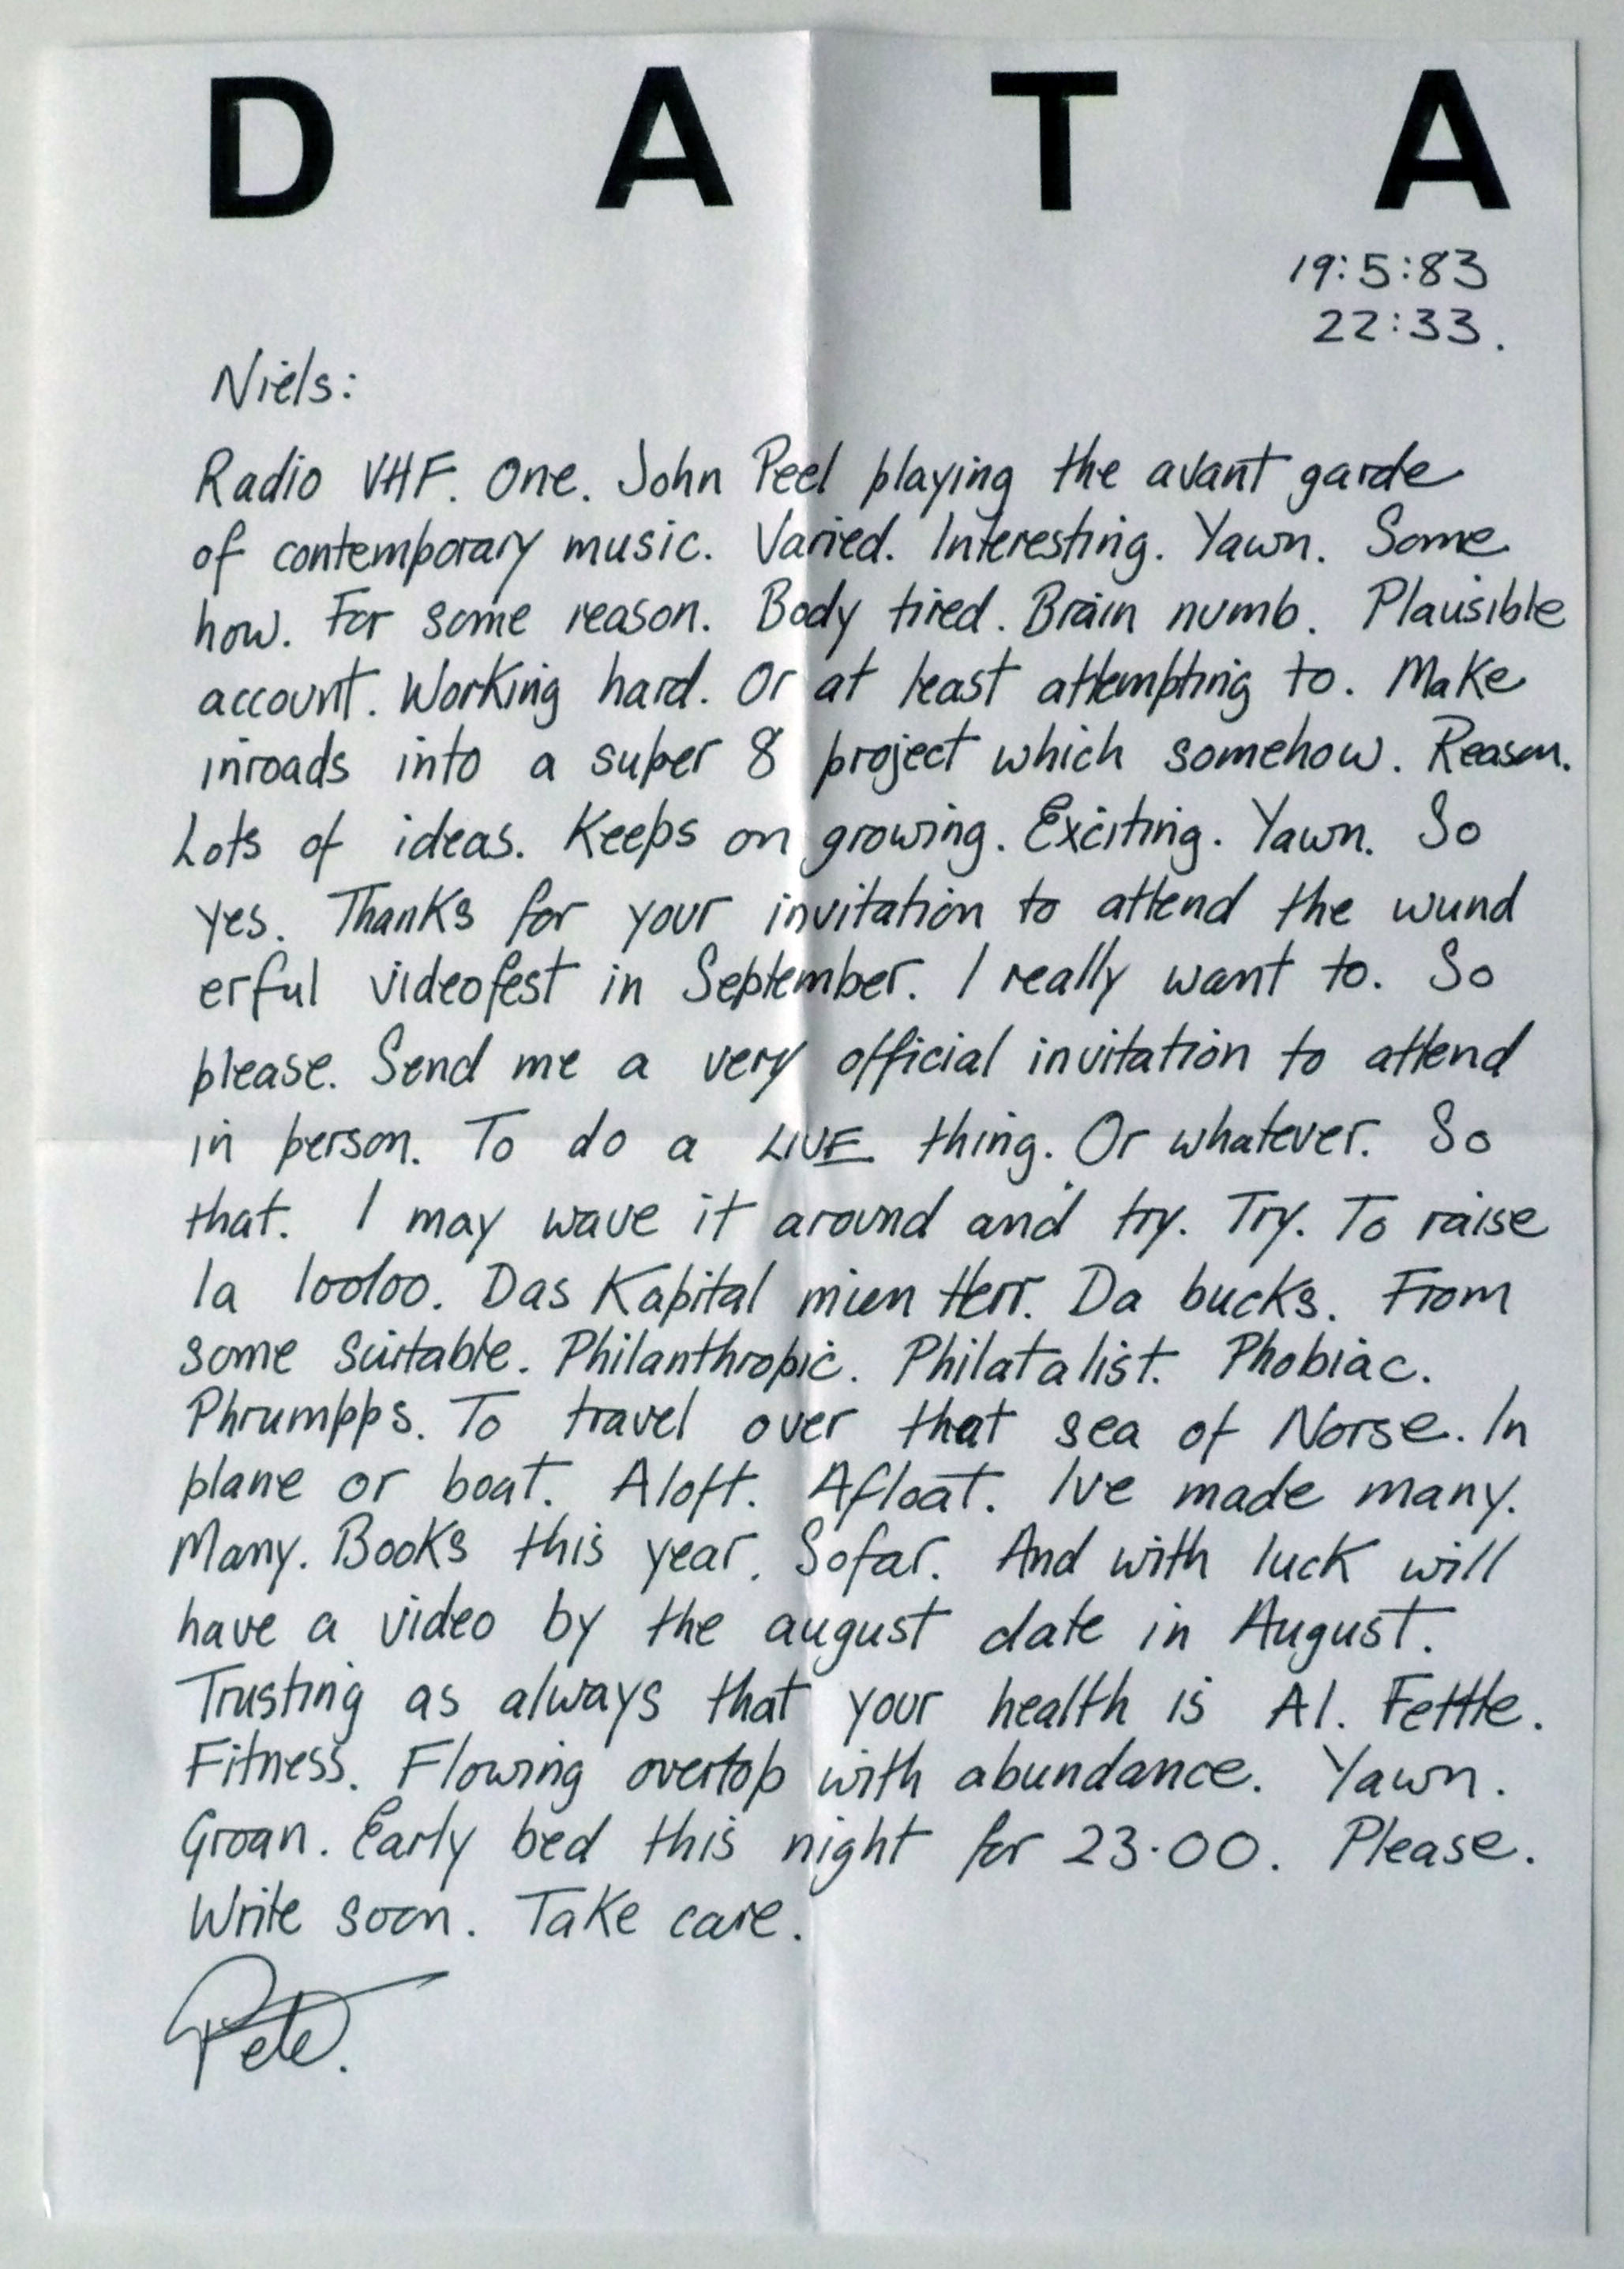 D A T A
19:5:83
22:33.
Niels:
Radio VHF. One. John Peel playing the avant garde
of contemporary music. Varied. Interesting. Yawn. Some
how. For some reason. Body tired. Brain numb. Plausible
account. Working hard. Or at least attempting to. Make
inroads into a super 8 project which somehow. Reason.
Lots of ideas. Keeps on growing. Exciting. Yawn. So
yes. Thanks for your invitation to attend the wund
erful videofest in September. I really want to. So
please. Send me a very official invitation to attend
in person. To do a LIVE thing. Or whatever. So
that. I may wave it around and try. Try. To raise
la looloo. Das Kapital mien Herr. Da bucks. From
some suitable. Philanthropic. Philatalist. Phobiac.
Phrumpps. To travel over that sea of Norse. In
plane or boat. Aloft. Afloat. Ive made many.
Many. Books this year. Sofar. And with luck will
have a video by the august date in August.
Trusting as always that your health is A1. Fettle.
Fitness. Flowing overtop with abundance. Yawn.
Groan. Early bed this night for 23.00. Please.
Write soon. Take care.
Pete.